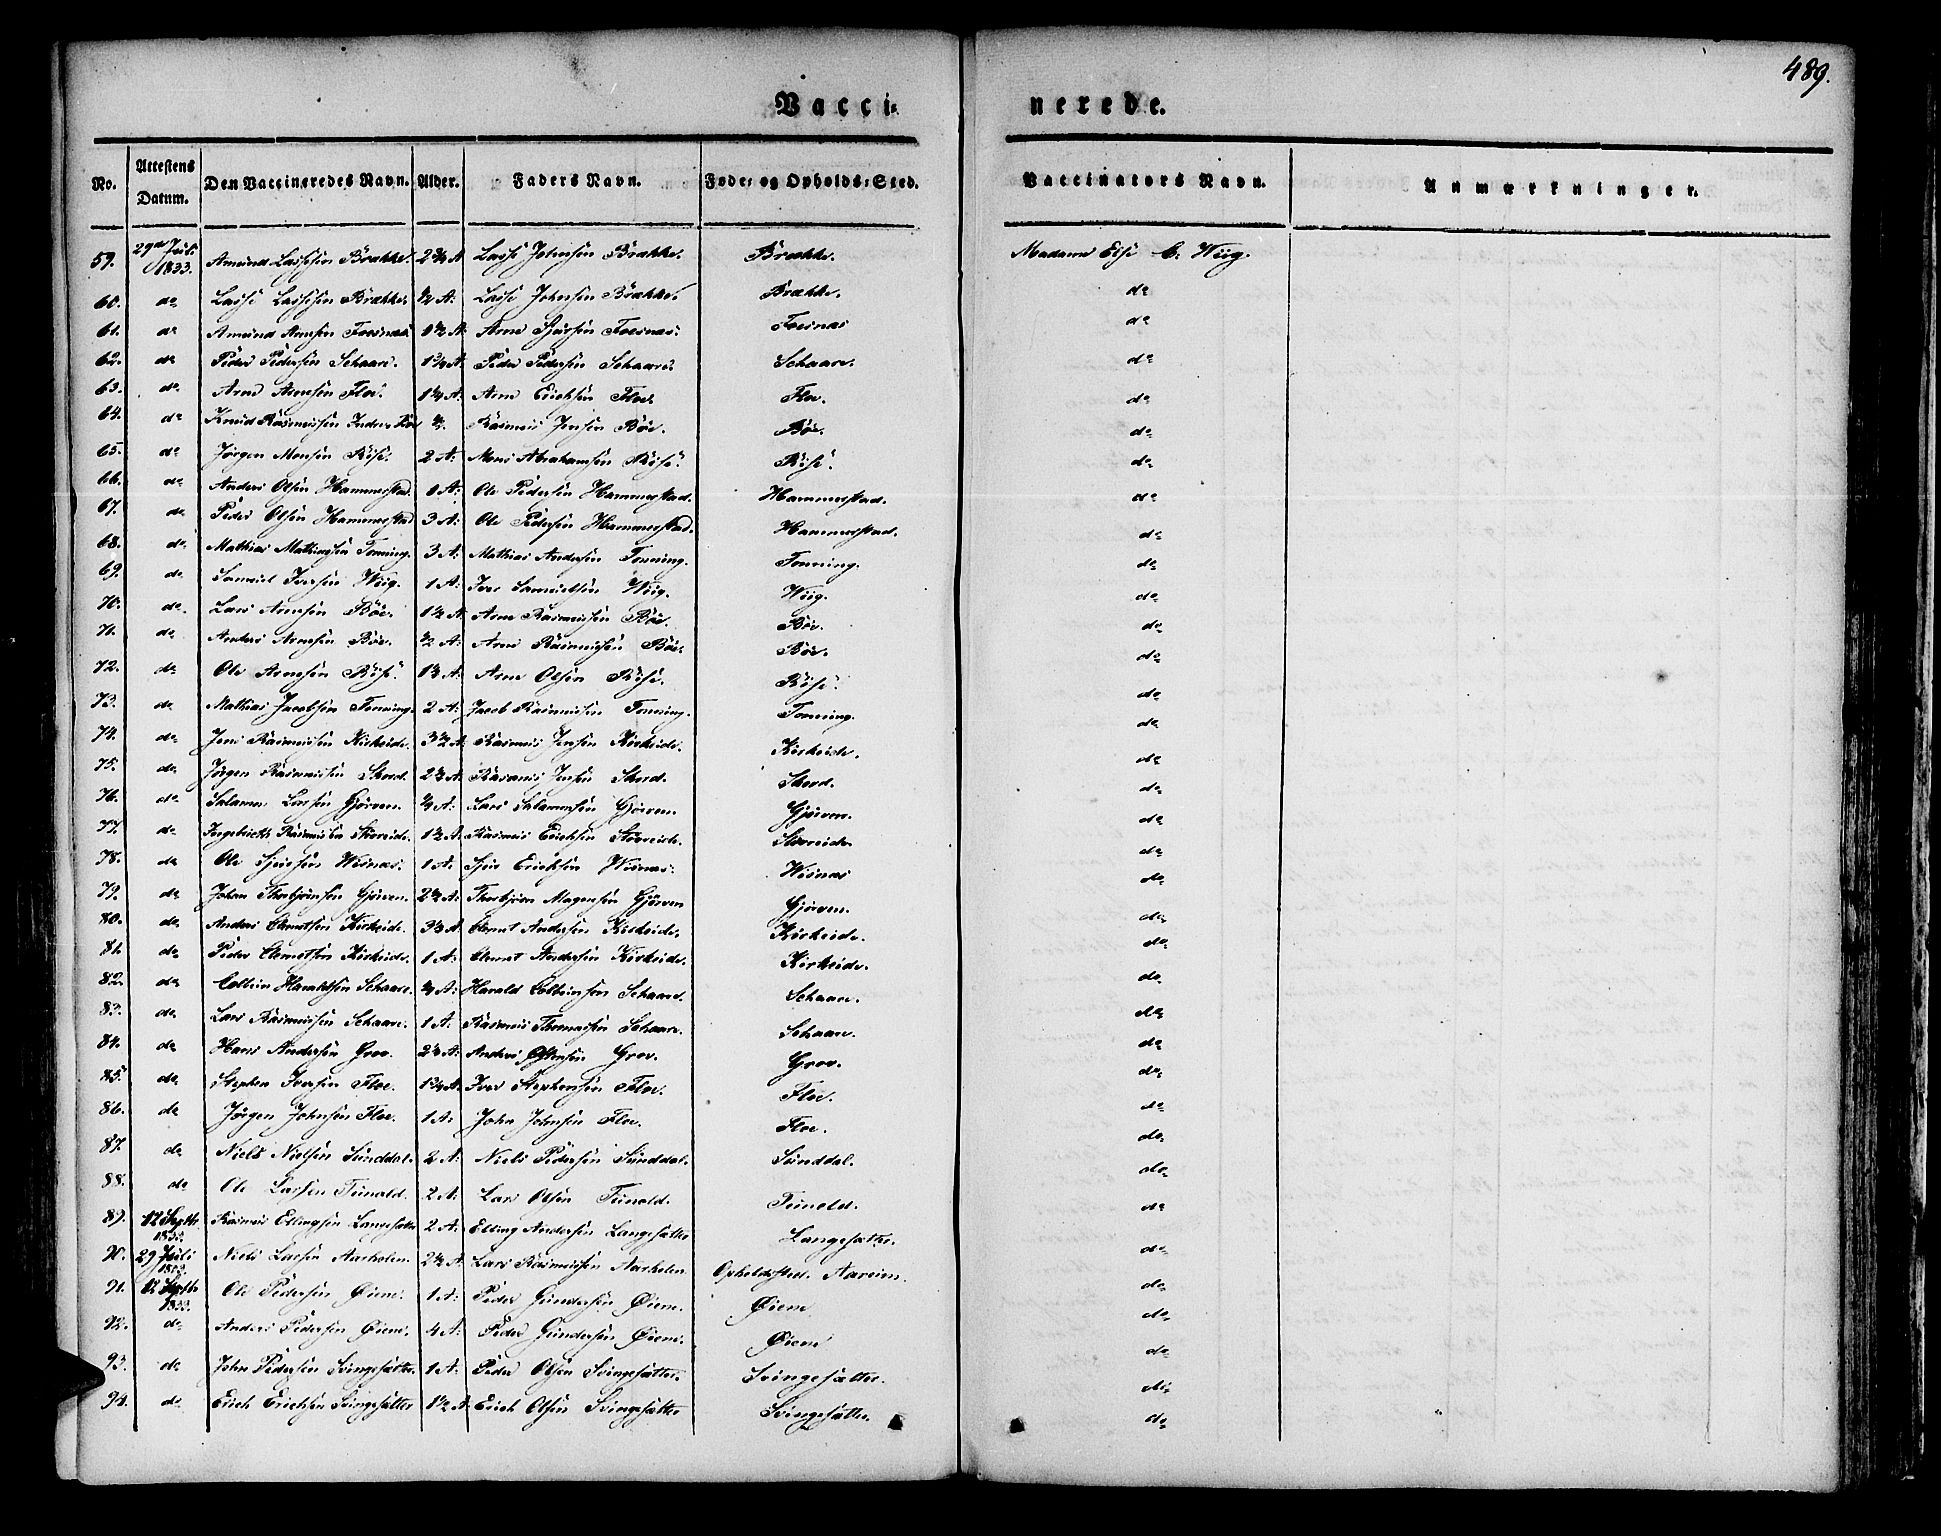 489.
Vacci- nerede.
No. Attestens Datum. Den Vaccineredes Navn. Alder. Faders Navn. Føde- og Opholds-Sted. Vaccinators Navn. Anmærkninger.
59. 29de Juli 1833. Amund Lassesen Brække. 2 3/4 A Lasse Johnsen Brække. Brække. Madame Else C. Wiig.
60. do Lasse Lassesen Brække. 1/2 A: Lasse Johnsen Brække. Brække. do
61. do Amund Arnesen Foesnæs 1 1/2 A: Arne Foesnæs. Foesnæs do
62. do Peder Pedersen Schaare. 1 3/4 A: Peder Pedersen Schaare. Schaare. do
63. do Arne Arnesen Floe. 1 1/4 A: Arne Erichsen Floe. Floe. do
64. do Knud Rasmussen Rasmus Jensen Böe. Böe. do
65. do Jörgen Monsen Röse. 2 A: Mons Abrahamsen Röse. Röse. do
66. do Anders Olsen Hammerstad. 1 A: Ole Pedersen Hammerstad. Hammerstad. do
67. do Peder Olsen Hammerstad 3 A: Ole Pedersen Hammerstad. Hammerstad. do
68. do Mathias Mathiassen Tonning. 3 A: Mathias Andersen Tonning. Tonning. do
69. do Samuel Iversen Wiig. 1 A: Iver Samuelsen Wiig. Wiig. do
70. do Lars Arnesen Böe. 1 1/2 A Arne Rasmussen Böe. Böe. do
71. do Anders Arnesen Böe. 1/2 A: Arne Rasmussen Böe. Böe. do
72. do Ole Arnesen Röse. Arne Olsen Röse. Röse. do
73. do Mathias Jacobsen Tonning. 2 A: Jacob Rasmussen Tonning. Tonning. do
74. do Jens Rasmussen Kirkeide. 3 1/2 A: Rasmus Jensen Kirkeide. Kirkeide. do
75. do Jörgen Rasmussen Skord. Rasmus Jensen Skord. Skord. do
76. do Salamon Larsen Gjörven. Lars Salamonsen Gjörven. Gjörven. do
77. do Ingebrecth Rasmussen Störreide. 1 1/2 A: Rasmus Erichsen Störreide. Störreide. do
78. do Ole Sjursen Wisnæs. 1 A: Sjur Erichsen Wisnæs. Wisnæs do
79. do Johan Thorbjörnsen Gjörven. Thorbjörn Mogensen Gjörven Gjörven. do
80. do Anders Clemetsen Kirkeide. Clemet Andersen Kirkeide. Kirkeide. do
81. do Peder Clemetsen Kirkeide. 1 A: Clemet Andersen Kirkeide. Kirkeide. do
82. do Colbein Haraldsen Schaare. Harald Colbeinsen Schaare. Schaare. do
83. do Lars Rasmussen Schaare. 1 A: Rasmus Thomassen Schaare. Schaare. do
84. do Hans Andersen Grov. Anders Grov. Grov. do
85. do Stephen Iversen Floe. 1 3/4 A: Iver Stephensen Floe. Floe. do
86. do Jörgen Johnsen Floe. 1 A: John Johnsen Floe. Floe. do
87. do Niels Nielsen Sunddal. 2 A: Niels Pedersen Sunddal. Sunddal. do
88. do Ole Larsen Tunold. 2 A: Lars Olsen Tunold. Tunold. do
89. 12 Septb 1833. Rasmus Ellingsen Langesætter 2 A: Elling Andersen Langesætter Langesætter. do
90. 29 Juli 1833. Niels Larsen Aarholen. Lars Rasmussen Aarholen. Opholdssted. Aareim. do
91. 12 Septb 1833. Ole Pedersen Øiene. 1 A: Peder Gundersen Øiene. Øiene do
92. do Anders Pedersen Øiene. 4 A: Peder Gundersen Øiene. Øiene do
93. do John Pedersen Svingesætter. 1 A: Peder Olsen Svingesætter. Svingesætter. do
94. do Erich Erichsen Svingesætter 1 1/2 A Erich Olsen Svingesætter Svingesætter. do